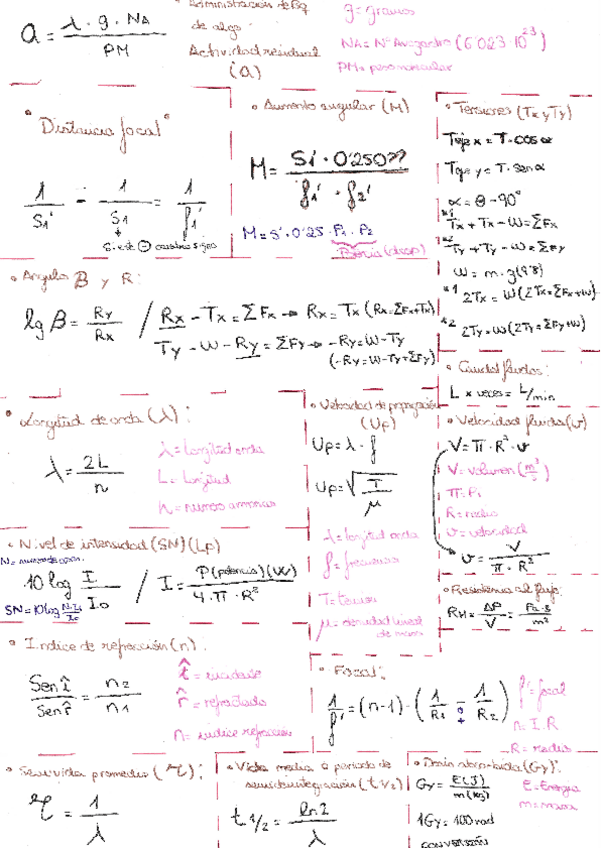 a = λ · g · NA / PM
Administración de Bq
de algo
Actividad residual
(a)
g = gramos
NA = Nº Avogadro (6'023·10²³)
PM = peso molecular
• Distancia focal"
1/S1' - 1/S1 = 1/f1'
+
Si est ⊖ cambia signo
• Aumento angular (M)
M = S1' · 0'250 / f1' · f2'
M = S' · 0'25 · P1 · P2
Potencia (diop)
• Tensiones (Tx y Ty)
Teje x = T · cos α
Teje y = T · sen α
α = θ - 90°
*1 Tx + Tx - W = ΣFx
*2 Ty + Ty - W = ΣFy
W = m · g (9'8)
*1 2Tx = W (2Tx = ΣFx + W)
*2 2Ty = W (2Ty = ΣFy + W)
• Angulo β y R:
tg β = Ry / Rx / Rx - Tx = ΣFx → Rx = Tx (Rx = ΣFx + Tx)
Ty - W - Ry = ΣFy → -Ry = W - Ty
(-Ry = W - Ty + ΣFy)
• Caudal fluidos:
L × veces = L/min
• Longitud de onda (λ):
λ = 2L / n
λ = longitud onda
L = longitud
n = número armónicos
• Velocidad de propagación
(Up)
Up = λ · f
Up = √ T / μ
λ = longitud onda
f = frecuencia
T = tensión
μ = densidad lineal
de masa
• Velocidad fluido (v)
V = π · R² · v
V = volumen (m³/s)
π = Pi
R = radio
v = velocidad
v = V / π · R²
• Nivel de intensidad (SN) (Lp)
10 log I / I0 / I = P(potencia)(W) / 4 · π · R²
SN = 10 log N·I0 / I0
• Resistencia al flujo:
RH = ΔP / V = Pa·s / m³
• Indice de refracción (n):
Sen î / Sen r̂ = n2 / n1
î = incidente
r̂ = refractado
n = indice refracción
• Focal:
1/f' = (n-1) · (1/R1 - 1/R2)
f' = focal
n = I.R
R = radio
• Semivida promedio (τ):
τ = 1 / λ
• Vida media o periodo de
semidesintegración (t½)
t 1/2 = ln 2 / λ
• Dosis absorbida (Gy):
Gy = E(J) / m(kg)
E = Energia
m = masa
1Gy = 100 rad
CONVERSIÓN